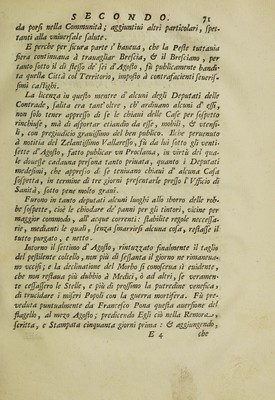 SECONDO. 71
da porsi nella Communità; aggiuntini altri particolari, spet-
tanti alla vniuersale salute.
E perche per sicura parte s'haueua, che la Peste tuttauia
fiera continuaua à trauagliar Brescia, & il Bresciano, per
tanto sotto il dì stesso de' sei d'Agosto, fù publicamente bandi-
ta quella Città col Territorio, imposto à contrafacienti seueris-
simi castighi.
La licenza in questo mentre d'alcuni degli Deputati delle
Contrade, salita era tant'oltre, ch'ardiuano alcuni d'essi,
non solo tener appresso di se le chiaui delle Case per sospetto
rinchiuse, mà di asportar etiandio da esse, mobili, & vtensi-
li, con pregiudicio grauissimo del ben publico. Il che peruenuto
à notitia del Zelantissimo Vallaresso, fù da lui sotto gli venti-
sette d'Agosto, fatto publicar vn Proclama, in virtù del qua-
le douesse cadauna persona tanto priuata, quanto i Deputati
medesimi, che appresso di se teneuano chiaui d'alcuna Casa
sospetta, in termine di tre giorni presentarle presso l'Vfficio di
Sanità, sotto pene molto graui.
Furono in tanto deputati alcuni luoghi allo sborro delle rob-
be sospette, cioè le chiodare de' panni per gli tintori, vicine per
maggior commodo, all'acque correnti: stabilite regole necessa-
rie, mediante le quali, senza smarrirsi alcuna cosa, restasse il
tutto purgato, e netto.
Intorno il settimo d'Agosto, rintuzzato finalmente il taglio
del pestilente coltello, non più di sessanta il giorno ne rimaneua-
no vccisi; e la declinatione del Morbo si conosceua sì euidente,
che non restaua più dubbio à Medici, ò ad altri, se veramen-
te cessassero le Stelle, e più di prossimo la putredine venefica,
di trucidare i miseri Popoli con la guerra mortifera. Fù pre-
veduta puntualmente da Francesco Pona questa auersione del
flagello, al mezo Agosto; predicendo Egli ciò nella Remora,
scritta, e Stampata cinquanta giorni prima: & aggiungendo,
E 4 che